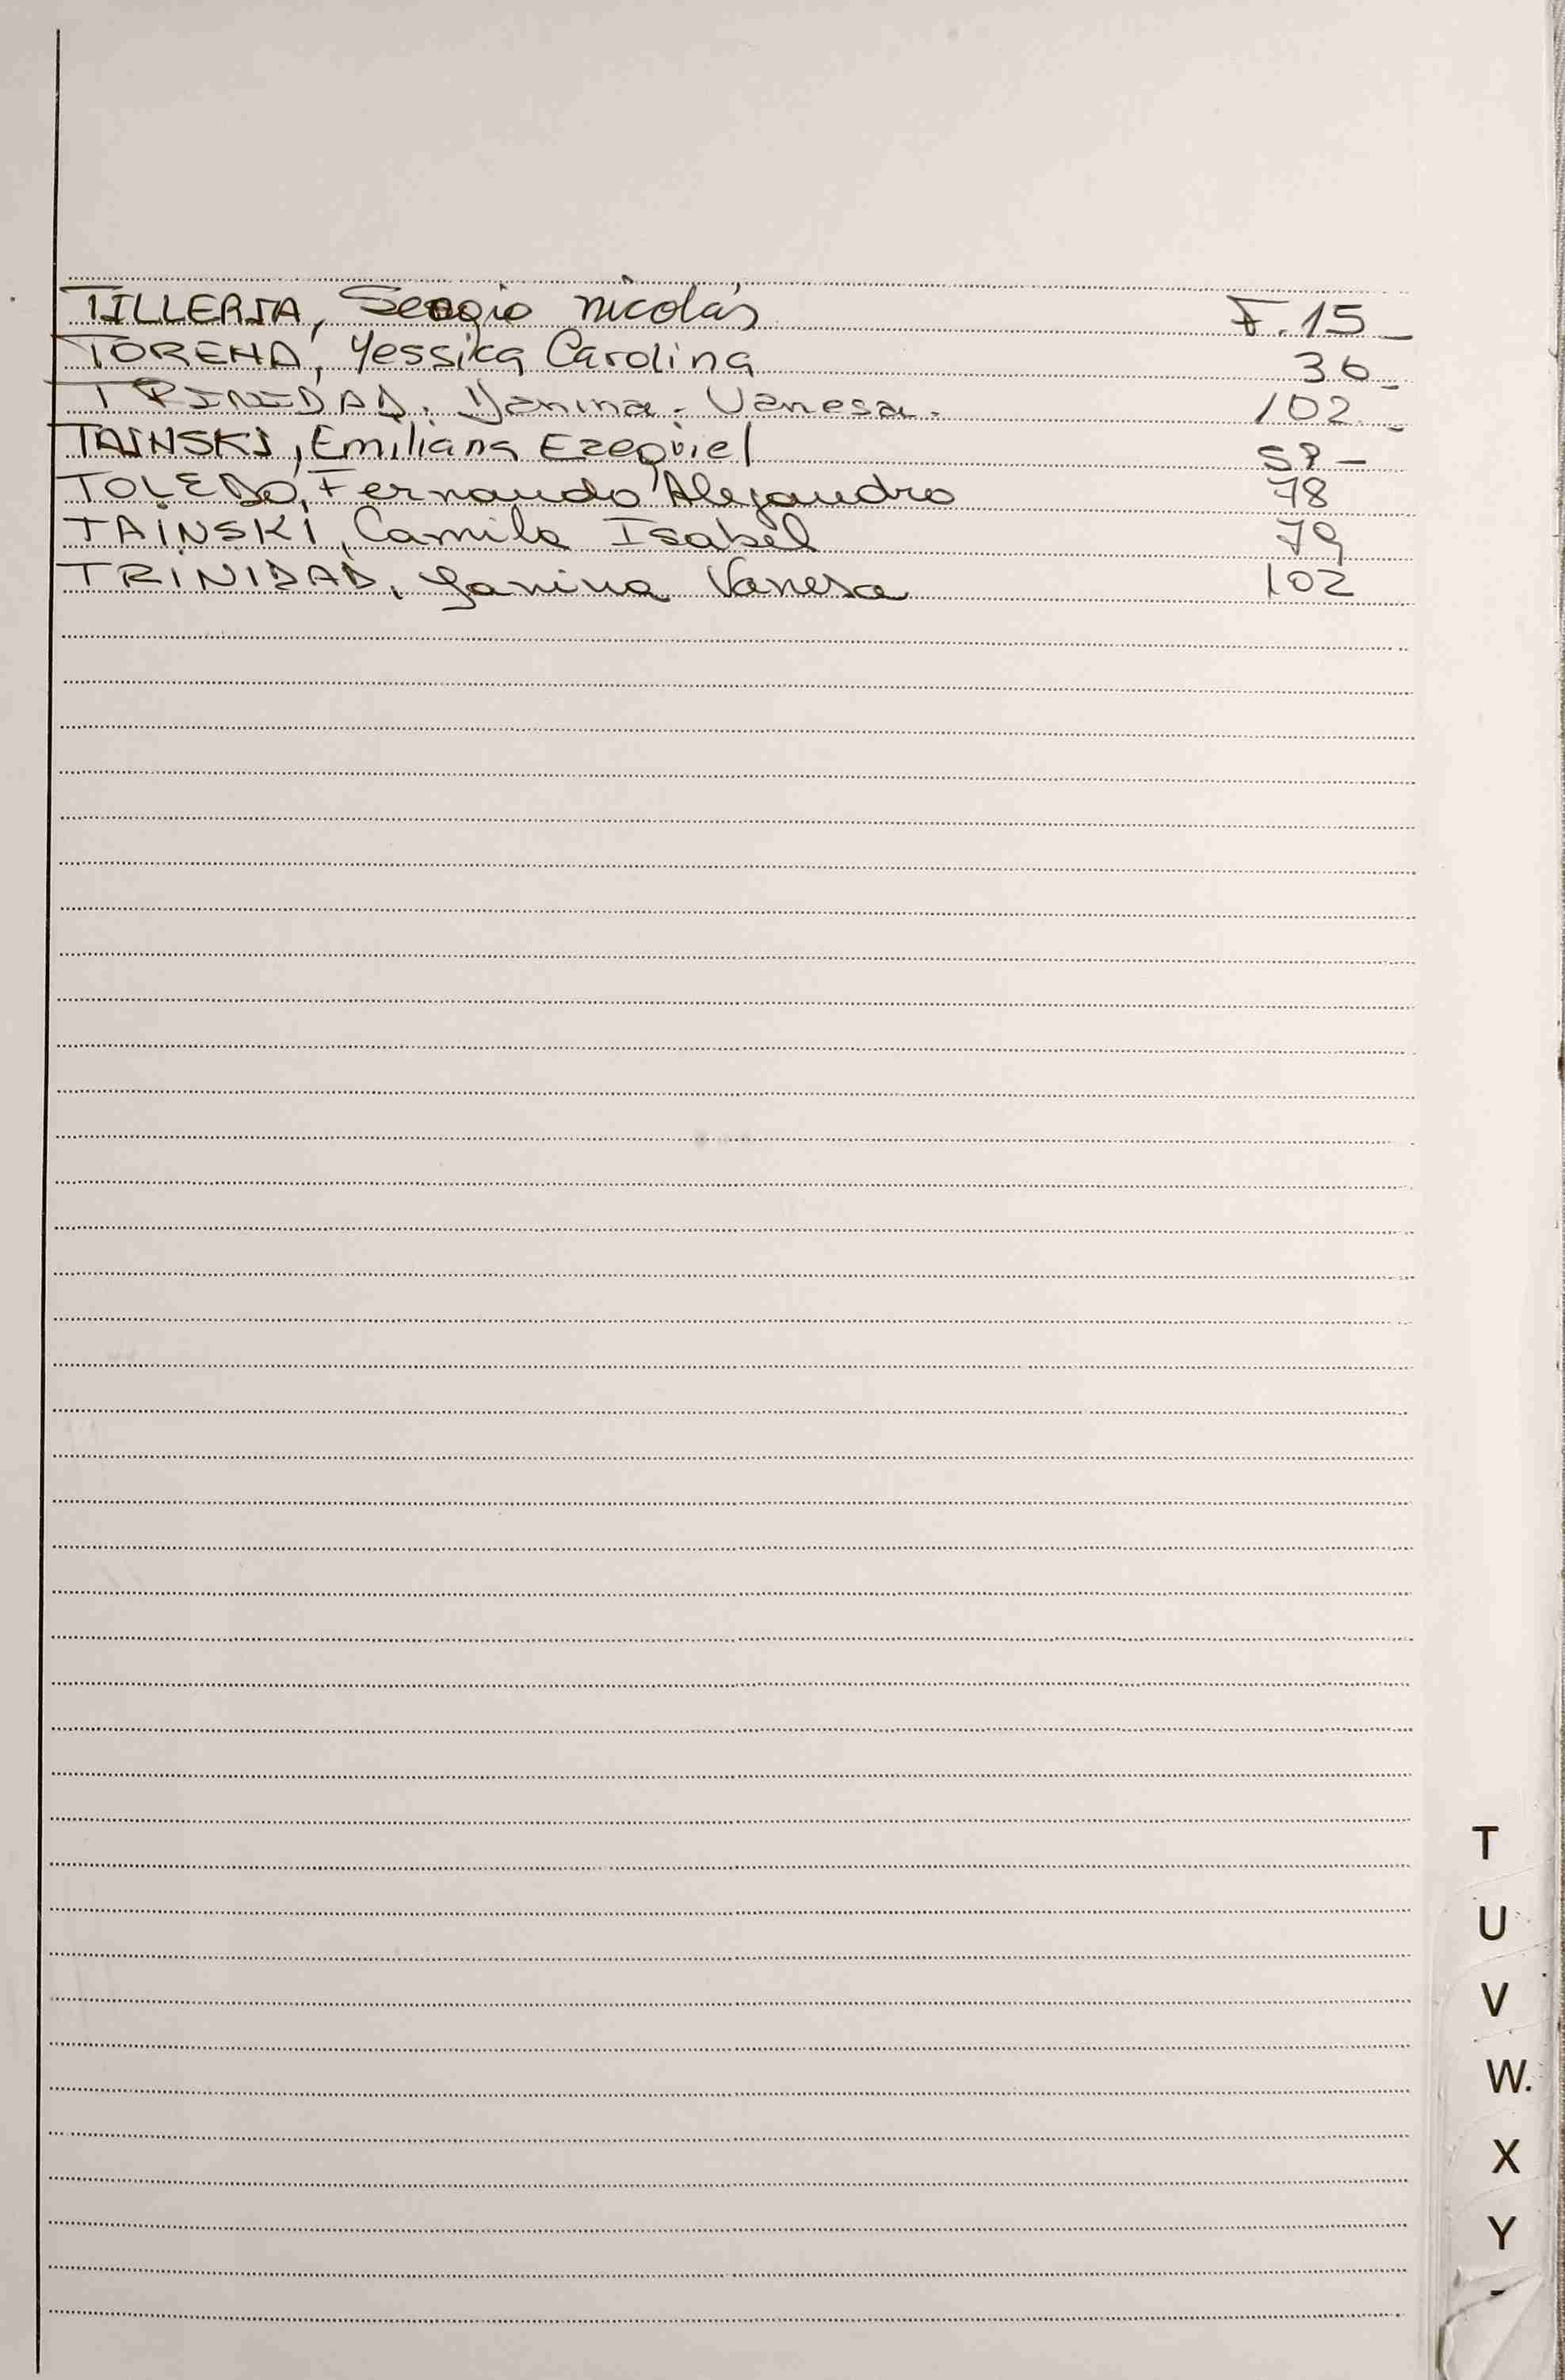 TILLERIA, Sergio Nicolás F.15_
TORENA, Yessica Carolina 36_
TRINIDAD. Yanina. Vanesa. 102._
TAINSKI, Emiliano Ezequiel
TOLEDO, Fernando Alejandro 78
TAINSKI, Camila Isabel 79
TRINIDAD, Yanina Vanesa 102
T
U
V
W.
X
Y